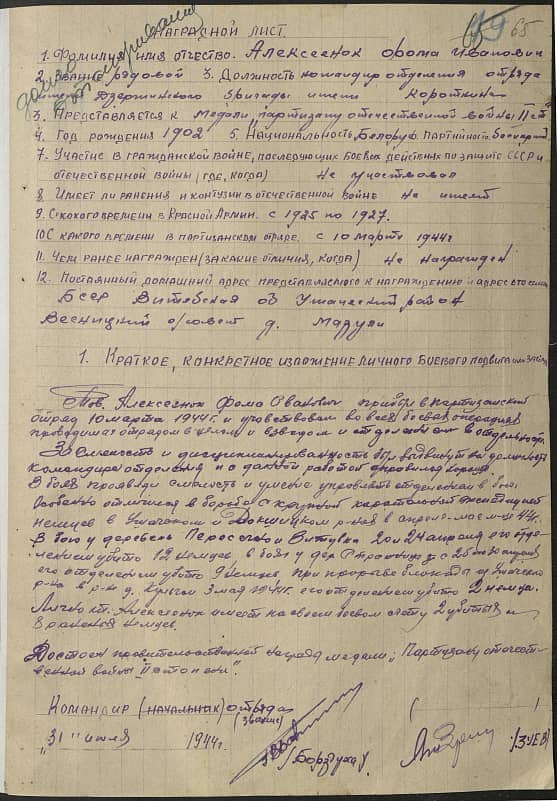 65
НАГРАДНОЙ ЛИСТ.
1. Фамилия имя отчество. Алексеенок Фома Иванович
2. Звание рядовой 3. Должность командир отделения отряда
Дзержинского бригады имени Короткина
3. Представляется к медали, партизану отечественной войны II ст
4. Год рождения 1902 5. Национальность Белорус Партийность беспарт
7. Участие в гражданской войне, последующих боевых действиях по защите СССР и
отечественной войны (где, когда) Не участвовал
8 Имеет ли ранения и контузии в отечественной войне Не имеет
9. С какого времени в Красной Армии. с 1925 по 1927.
10 С какого времени в партизанском отряде. с 10 марта 1944г
11. Чем ранее награжден (за какие отличия, когда) Не награжден
12. Постоянный домашний адрес представляемого к награждению и адрес его семьи
БССР Витебская об Ушачский район
Весницкий с/совет д. Мазули
1. Краткое, конкретное изложение личного боевого подвига или заслуг
Тов. Алексеенок Фома Иванович прибыл в партизанский
отряд 10 марта 1944г. и участвовал во всех боевых операциях
проводимых отрядом в целом и взводом и отделением в отдельности.
За смелость и дисциплинированность был выдвинут на должность
командира отделения и с данной работой справился хорошо.
В боях проявил смелость и умение управлять отделением в бою.
Особенно отличился в борьбе с крупной карательной экспедицией
немцев в Ушачском и Докшицком р-нах в апреле-мае м-це 44г.
В бою у деревень Пересечно и Витовка 20 и 24 апреля его отде-
лением убито 12 немцев, в бою у дер. с 25 по 30 апреля
его отделением убито 9 немцев, при прорыве блокады из Ушачского
р-на в р-н д. 3 мая 1944г. его отделением убито 2 немца.
Лично т. Алексеенок имеет на своем боевом счету 2 убитых и
3 раненых немцев.
Достоин правительственной награды медали „Партизану отечест-
венной войны II степени".
Командир (начальник) отряда
(звание)
"31" июля 1944г.
/Борздуха/
/Зуев/